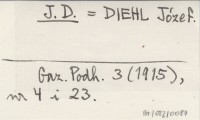 J. D. = DIEHL Józef.
Gaz. Podh. 3 (1915),
nr 4 i 23.